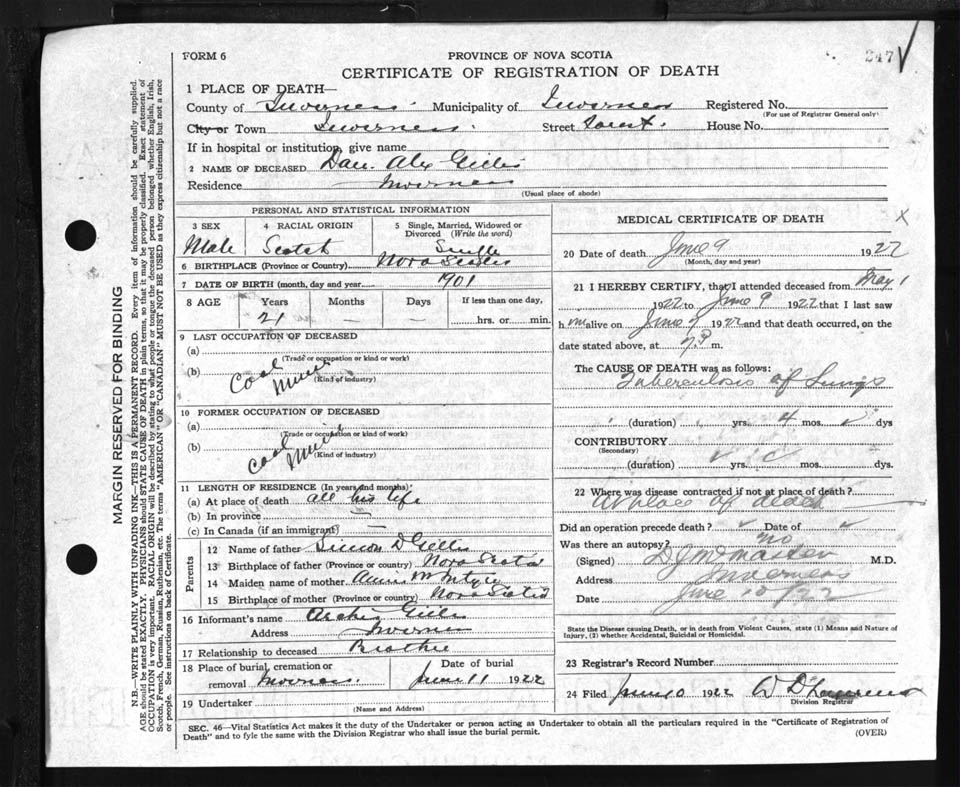 FORM 6
PROVINCE OF NOVA SCOTIA
247
CERTIFICATE OF REGISTRATION OF DEATH
1 PLACE OF DEATH—
County of Inverness. Municipality of Inverness Registered No.
(For use of Registrar General only)
City or Town Inverness. Street Forest. House No.
If in hospital or institution, give name
2 NAME OF DECEASED Dan. Alex Gillis
Residence Inverness
(Usual place of abode)
PERSONAL AND STATISTICAL INFORMATION
3 SEX 4 RACIAL ORIGIN 5 Single, Married, Widowed or Divorced (Write the word)
Male Scotch Single
6 BIRTHPLACE (Province or Country) Nova Scotia
7 DATE OF BIRTH (month, day and year) 1901
8 AGE Years Months Days If less than one day,
21 — — hrs. or min.
9 LAST OCCUPATION OF DECEASED
(a)
(Trade or occupation or kind of work)
(b) Coal Miner
(Kind of industry)
10 FORMER OCCUPATION OF DECEASED
(a)
(Trade or occupation or kind of work)
(b) Coal Miner
(Kind of industry)
11 LENGTH OF RESIDENCE (In years and months)
(a) At place of death all his life
(b) In province —
(c) In Canada (if an immigrant) —
Parents
12 Name of father Simon D Gillis
13 Birthplace of father (Province or country) Nova Scotia
14 Maiden name of mother McIntyre
15 Birthplace of mother (Province or country) Nova Scotia
16 Informant's name Archie Gillis
Address Inverness
17 Relationship to deceased Brother
18 Place of burial, cremation or removal Inverness. Date of burial June 11 1922
19 Undertaker
(Name and Address)
MEDICAL CERTIFICATE OF DEATH
X
20 Date of death June 9 1922
(Month, day and year)
21 I HEREBY CERTIFY, that I attended deceased from May 1
1922 to June 9 1922 that I last saw
h im alive on June 9 1922 and that death occurred, on the
date stated above, at 7.P m.
The CAUSE OF DEATH was as follows:
Tuberculosis of Lungs
(duration) yrs. 4 mos. dys
CONTRIBUTORY
(Secondary)
(duration) yrs. mos. dys.
22 Where was disease contracted if not at place of death?
At place of death
Did an operation precede death? Date of
Was there an autopsy? no
(Signed) M.D.
Address Inverness
Date June 10/22
State the Disease causing Death, or in death from Violent Causes, state (1) Means and Nature of
Injury, (2) whether Accidental, Suicidal or Homicidal.
23 Registrar's Record Number
24 Filed June 10 1922
Division Registrar
SEC. 46—Vital Statistics Act makes it the duty of the Undertaker or person acting as Undertaker to obtain all the particulars required in the "Certificate of Registration of
Death" and to fyle the same with the Division Registrar who shall issue the burial permit.
(OVER)
MARGIN RESERVED FOR BINDING
N.B.—WRITE PLAINLY WITH UNFADING INK—THIS IS A PERMANENT RECORD. Every item of information should be carefully supplied.
AGE should be stated EXACTLY. PHYSICIANS should STATE CAUSE OF DEATH in plain terms, so that it may be properly classified. Exact statement of
OCCUPATION is very important. RACIAL ORIGIN will be described by stating to what people or tongue the deceased person belonged whether English, Irish,
Scotch, French, German, Russian, Ruthenian, etc. The terms "AMERICAN" OR "CANADIAN" MUST NOT BE USED as they express citizenship but not a race
or people. See instructions on back of Certificate.